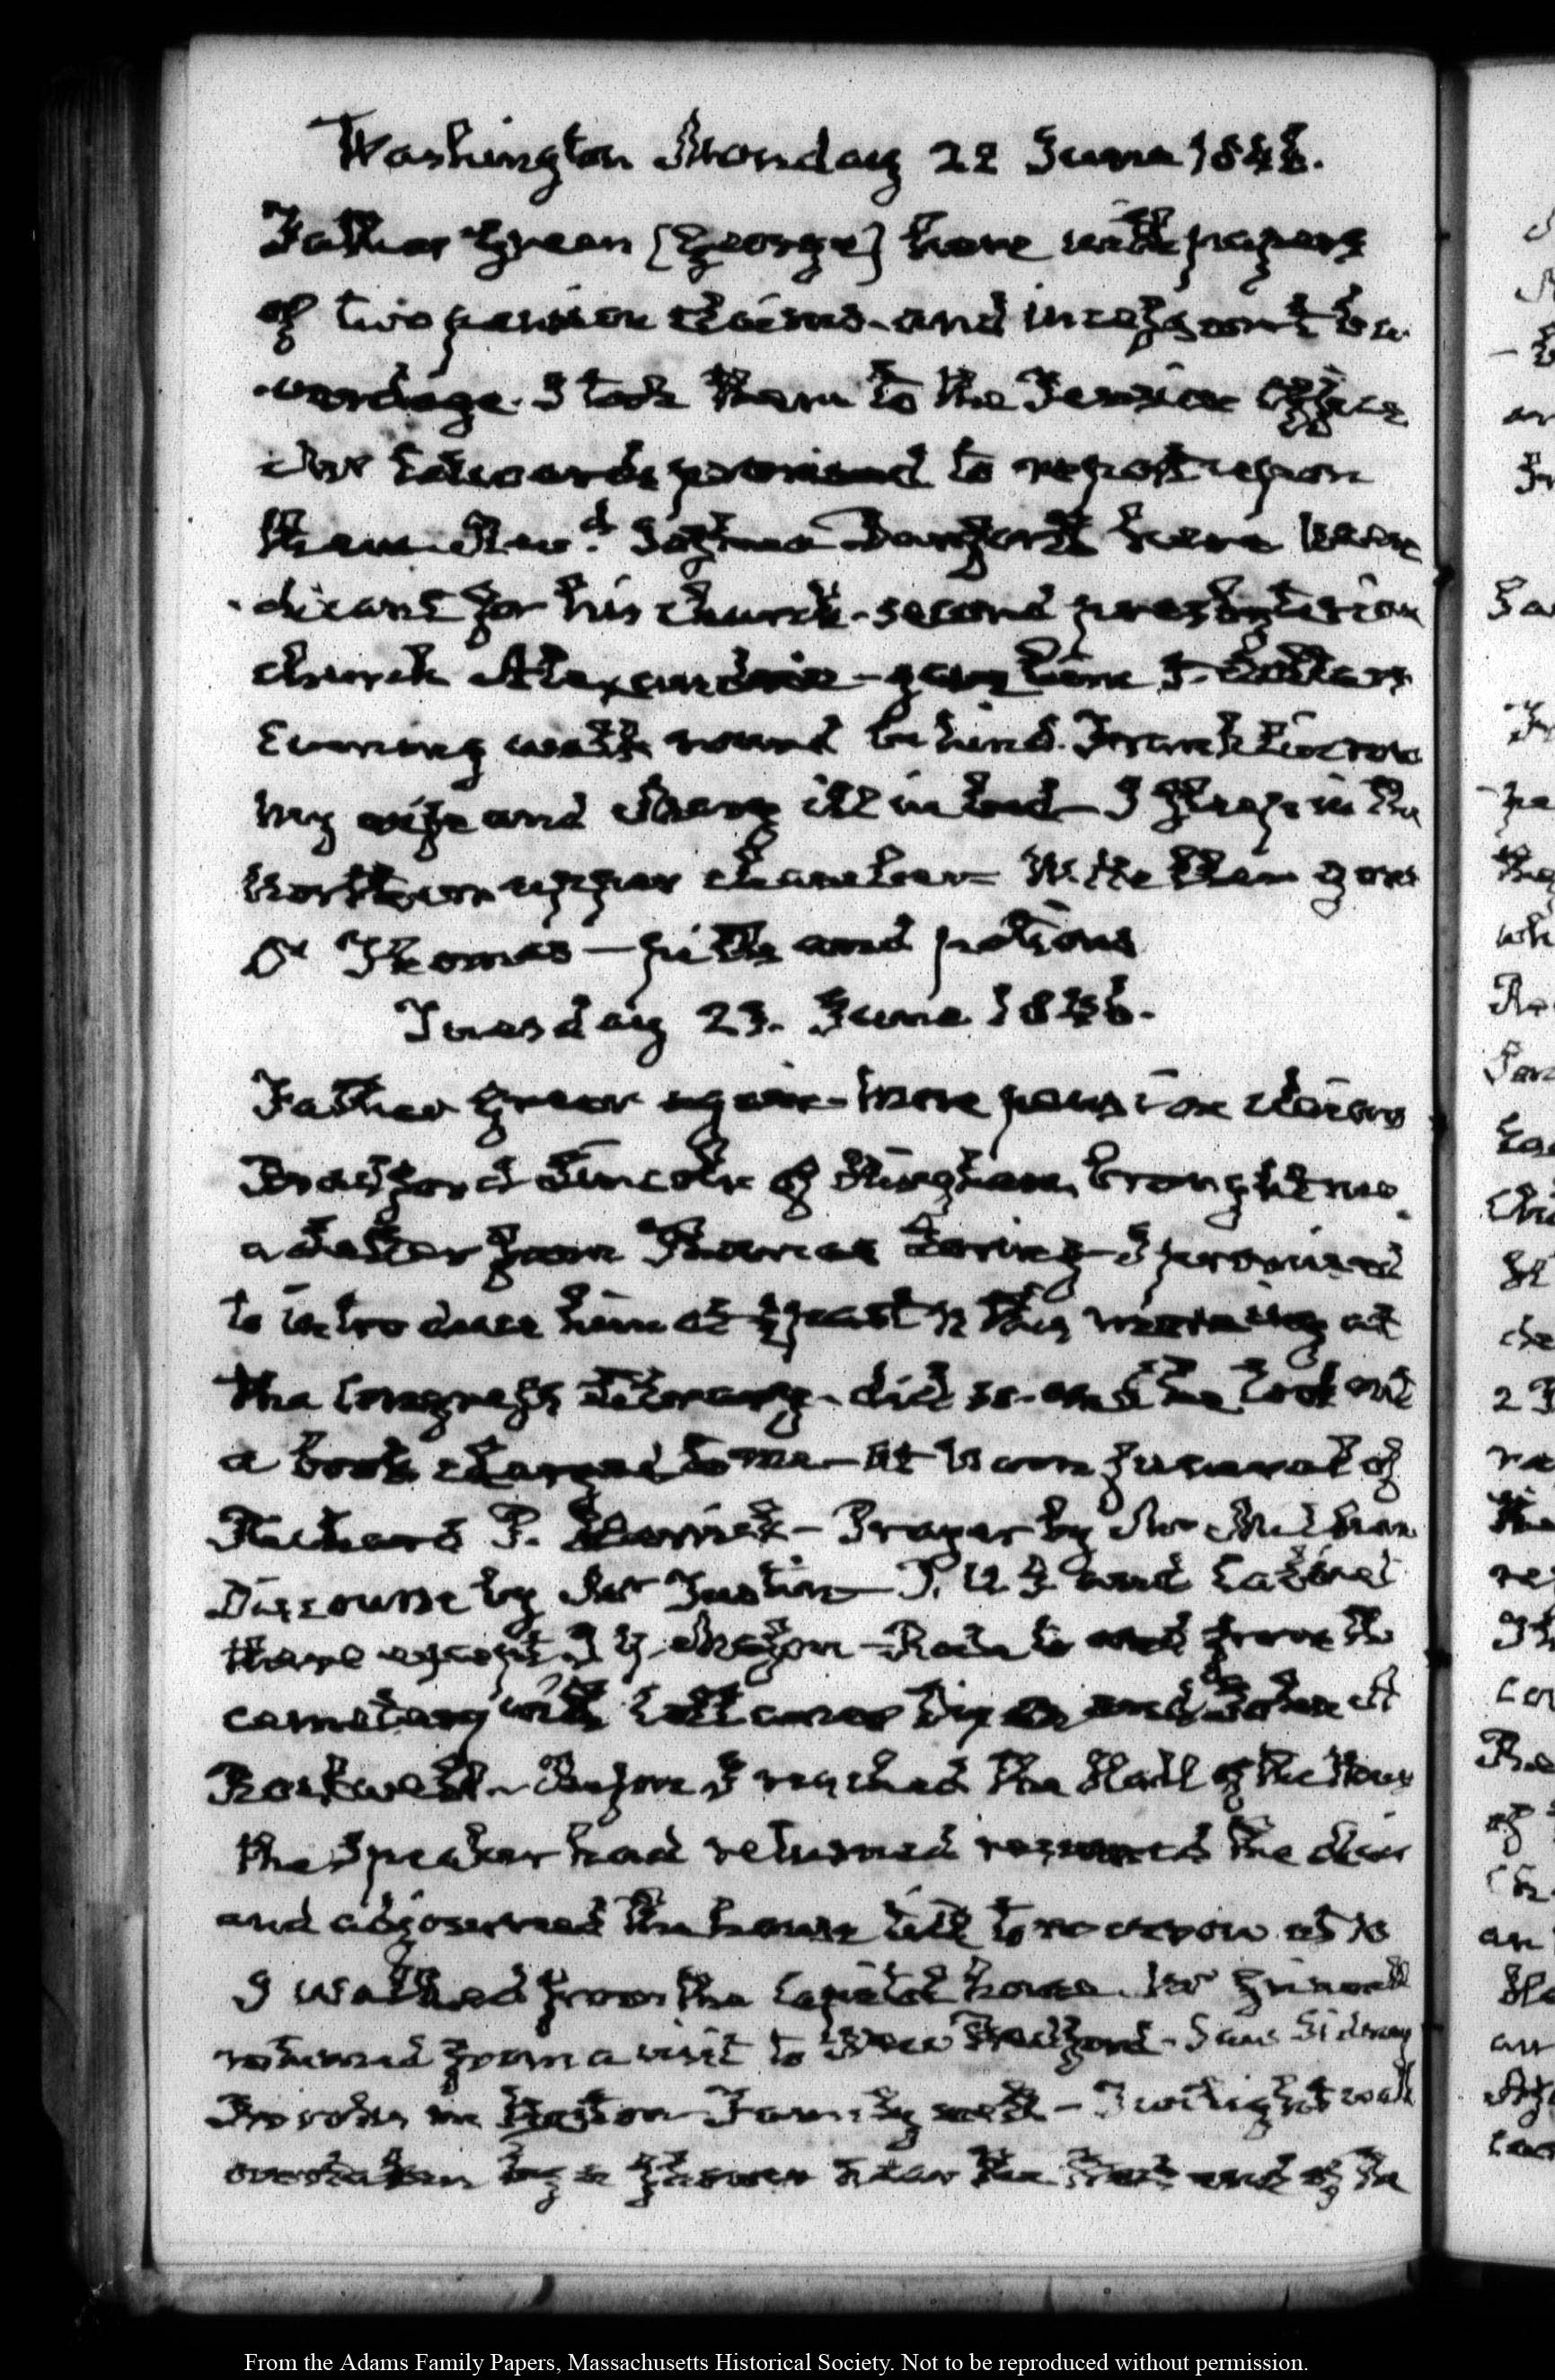 Washington Monday 22 June 1846.
Father Green (George) here with papers
of two pension claims and incessant ver
wordage. I took them to the Pension Office
Mr Edwards promised to report upon
them. Revd. Joshua Danforth here
for his church. second presbyterian
church Alexandria - gave him 5 dollars
Evening walk round behind Franklin row
my wife and Mary ill in bed - I sleep in the
northern upper chamber
Dr Thomas - pills and potions
Tuesday 23. June 1846.
Father Green again - more pension claims
Bradford Lincoln of Hingham, brought me
a letter from Thomas Loring - I promised
to introduce him at past 11 this morning at
the Congress Library - did so and he took out
a book charged to me - At 12 funeral of
Richard P. Herrick - Prayer by Mr Milburn
Discourse by Mr Tustin - P. U.S and Cabinet
there except J. Y. Mason - Rode to and from the
cemetery with and John A
Rockwell - Before I reached the Hall of the House
the Speaker had returned resumed the chair
and adjourned the house till to-morrow at 10
I walked from the Capitol home. Mr Grinnell
returned from a visit to New Bedford - Saw Sidney
Brooks in Boston Family well - Twilight walk
overtaken by a shower near the end of the